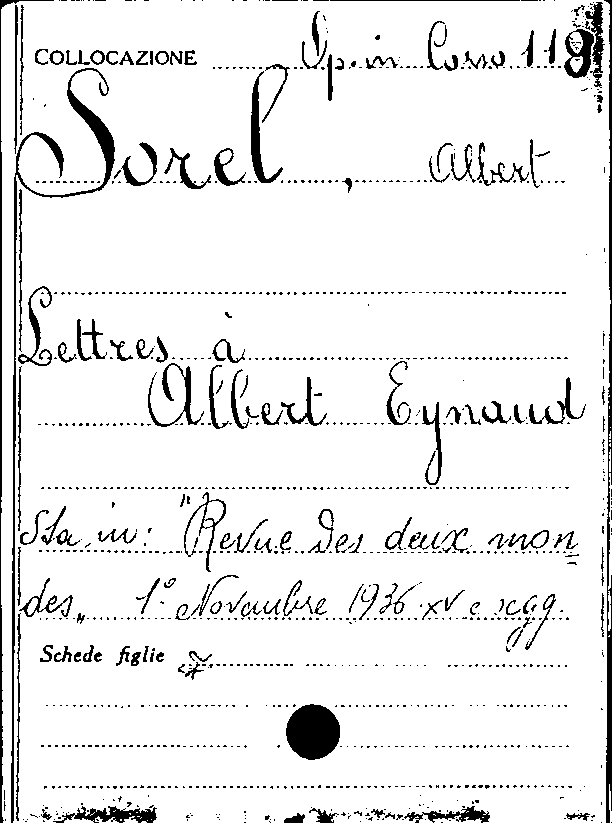 COLLOCAZIONE Sp. in Corso 118
Sorel, Albert
Lettres à
Albert Eynaud
Sta in: "Revue des deux mon
des„ 1° Novembre 1936. XV e sgg.
Schede figlie